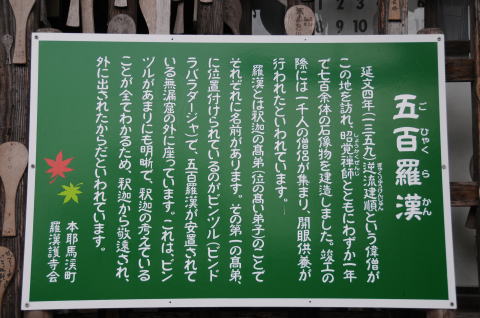 五百羅漢
ごひゃくらかん
延文四年(一三五九)逆流建順という偉僧が
ぎゃくりゅうけんじゅん
この地を訪れ、昭覚禅師とともにわずか一年
しょうかくぜんじ
で七百余体の石像物を建造しました。竣工の
際には一千人の僧侶が集まり、開眼供養が
行われたといわれています。
羅漢とは釈迦の高弟(位の高い弟子)のことで
それぞれに名前があります。その第一の高弟、
に位置付けられているのがビンヅル(ビンド
ラバラターシャ)で、五百羅漢が安置されて
いる無漏窟の外に座っています。これは、ビン
ヅルがあまりにも明晰で、釈迦の考えている
ことが全てわかるため、釈迦から敬遠され、
外に出されたからだといわれています。
本耶馬渓町
羅漢護寺会